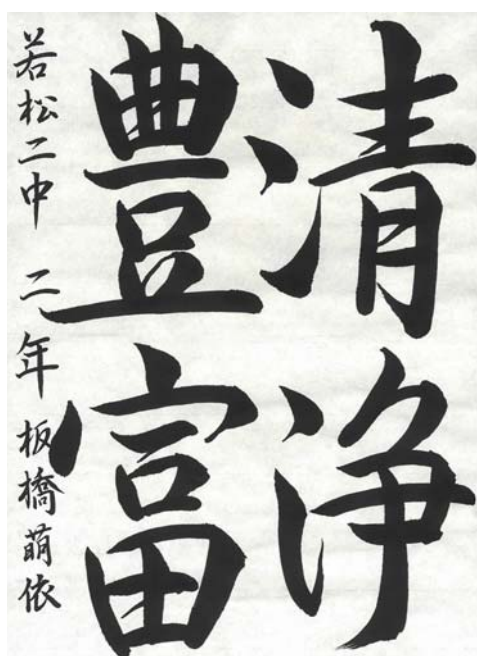 清浄
豊富
若松二中 二年 板橋萌依